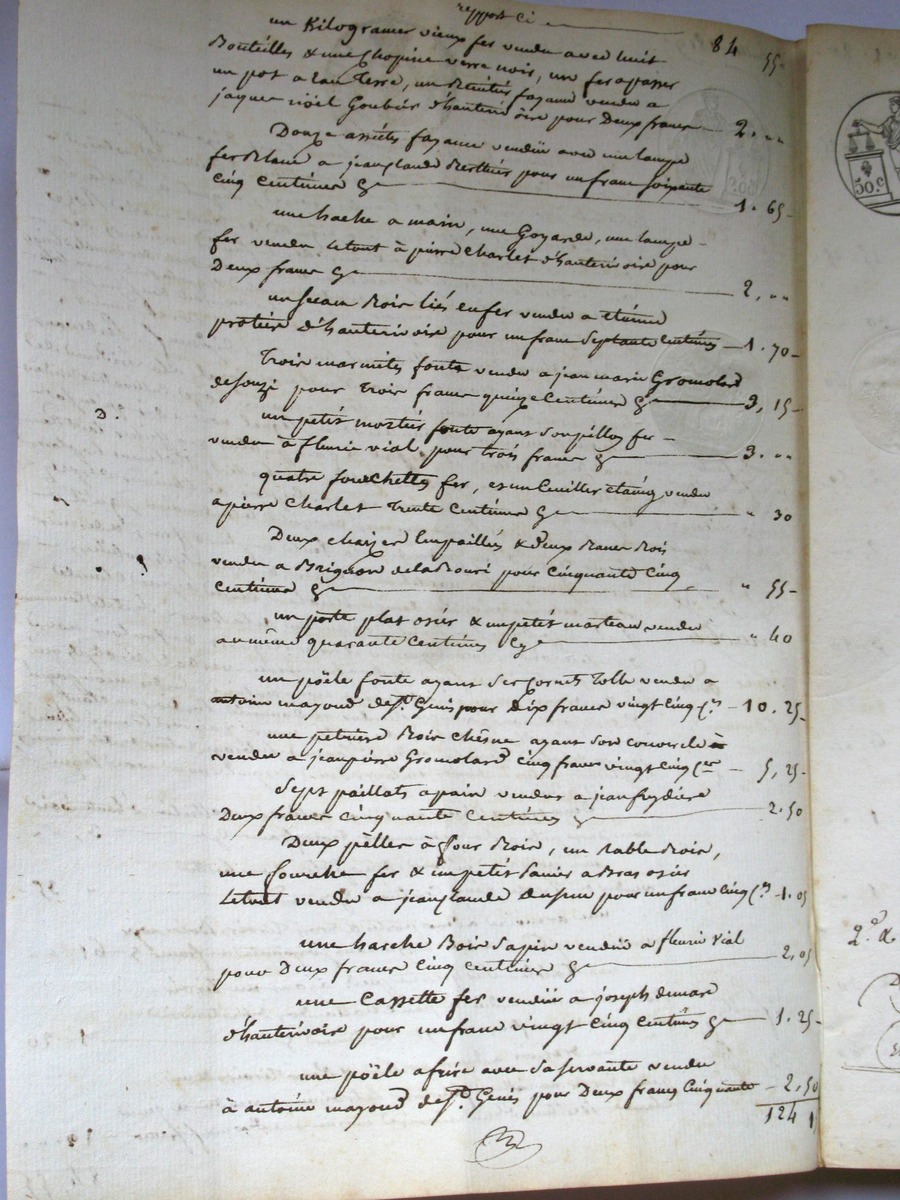 report ci 84 55
un Kilogramer vieux fer vendu avec huit
Bouteilles & une Chopine verre noir, un fer a passer
un pot a Eau Terre, un fayance vendu a
jaques nöel Goubier d'hauterivoire pour Deux francs 2. ,,
Douze assietes fayance venduü avec une lampe
fer blanc a jeanclaude Berthier pour un franc soixante
cinq Centimes 1. 65
une hache a main, une Goyarde, une lampe
fer vendu Letout à pierre Charlet d'hauterivoire pour
Deux francs 2. ,,
un seau Bois liés en fer vendu a etienne
protière d'hauterivoire pour un franc Septante Centimes 1. 70
Trois marmites fonte vendu a jean marie Gromolard
de Souzi pour Trois francs quinze Centimes 3, 15
D. un petit mortier fonte ayant son pillon fer
vendu à fleurie vial pour trois francs 3. ,,
quatre fourchettes fer, et un Cuiller etaing vendu
a pierre Charlet Trente Centimes ,, 30
Deux chaises Empaillés & deux Bancs Bois
vendu a Brignon de pour Cinquante Cinq
Centimes ,, 55
un porte plat osier & un petit marteau vendu
au même quarante Centimes ,, 40
un pöële fonte ayant ses Cornets Tolle vendu a
antoine mayoud de St. Genis pour Dix francs vingt Cinq Cs. 10. 25
une petriere Bois Chêsne ayant son couvercle
vendu a jeanpierre Gromolard Cinq francs vingt Cinq Ces 5, 25
Sept paillats a pain vendus a jean
Deux francs Cinquante Centimes 2. 50
Deux pêlles à four Bois, un Rable Bois,
une fourche fer & un petit panier a Bras osier
Letout vendu a jeanclaude pour un franc Cinq Cs 1. 05
une harche Bois Sapin venduü a fleurie Vial
pour Deux francs Cinq Centimes 2, 05
une Cassette fer venduü a joseph
d'hauterivoire pour un franc vingt Cinq Centimes 1. 25
une pöële a frire avec sa servante vendu
à antoine mayoud de St. Genis pour Deux francs Cinquante 2, 50
124 1
50.c
2.e